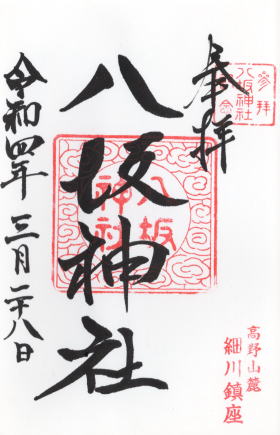 奉拝
参拝
八坂神社
記念
八坂神社
八坂
神社
高野山麓
細川鎮座
令和四年三月二十八日